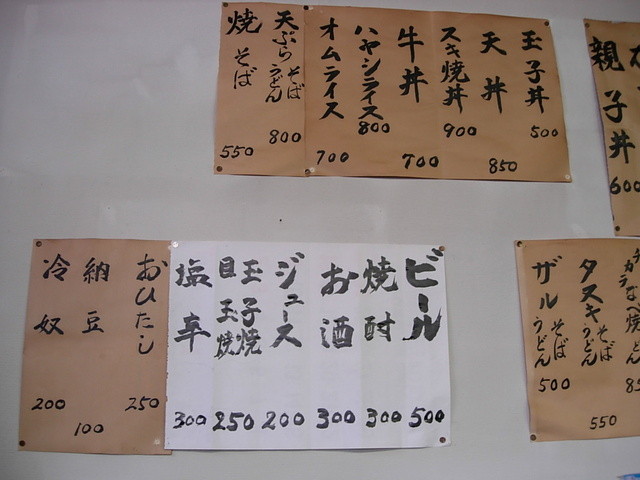 親子丼
600
玉子丼
500
天丼
850
スキ焼丼
900
牛丼
700
ハヤシライス
800
オムライス
700
天ぷらそばうどん
800
焼そば
550
タスキそばうどん
550
ザルそばうどん
500
ビール
500
焼酎
300
お酒
300
ジュース
200
玉子焼
目玉焼
250
塩辛
300
おひたし
250
納豆
100
冷奴
200